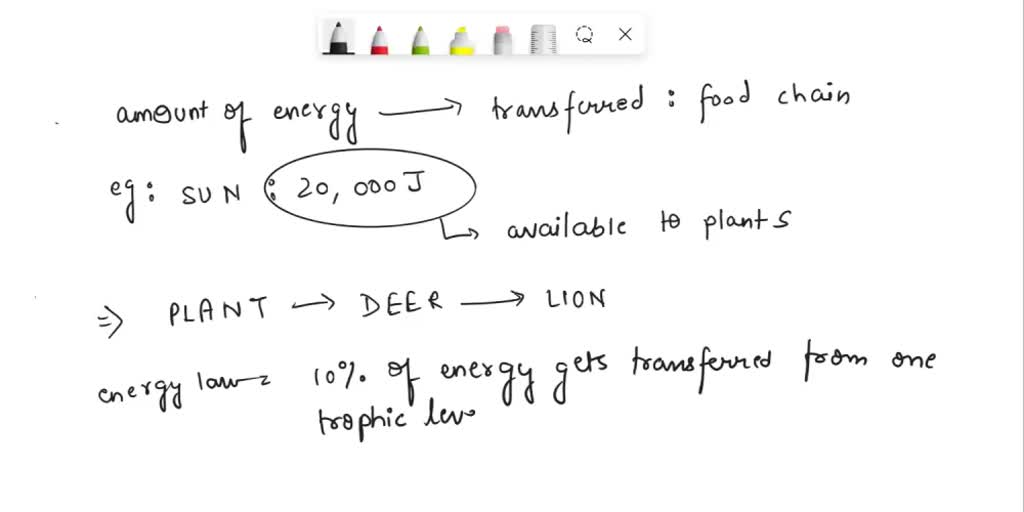 amount of energy → transferred : food chain
eg: SUN : 20,000J
↳ available to plants
⇒ PLANT → DEER → LION
energy law = 10% of energy gets transferred from one
trophic leve